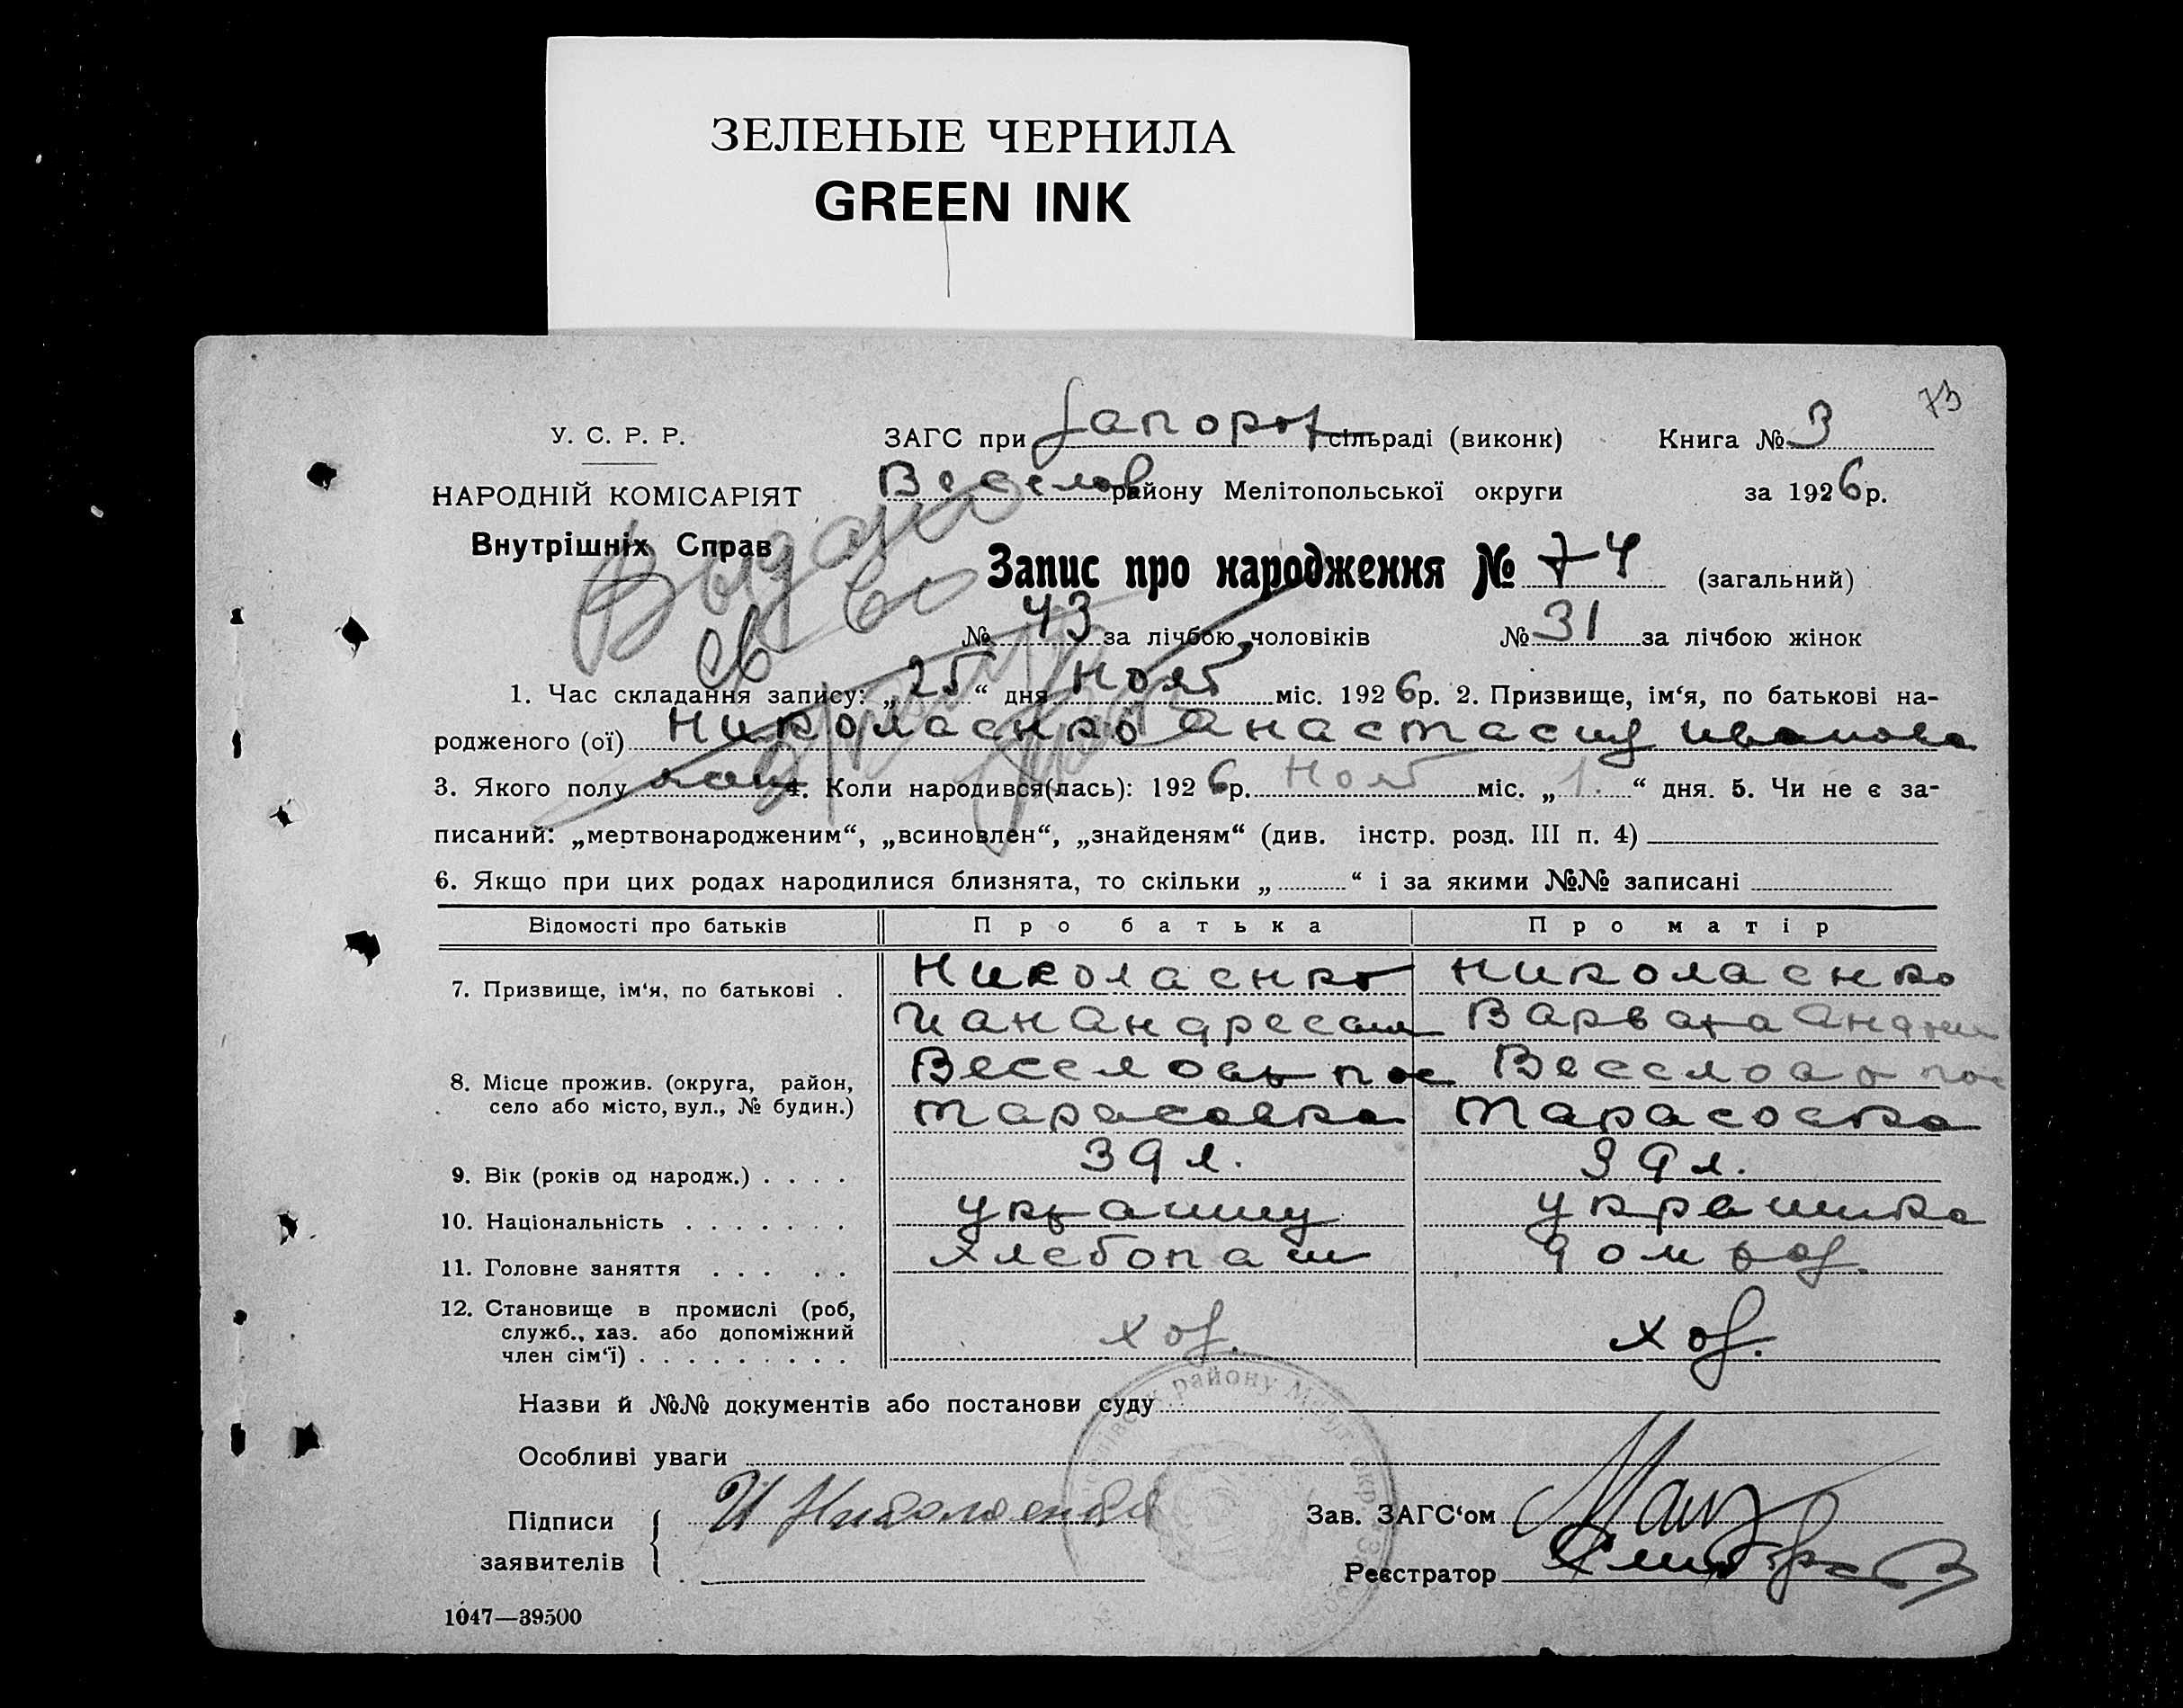 ЗЕЛЕНЫЕ ЧЕРНИЛА
GREEN INK
73
У. С. Р. Р.
ЗАГС при Запорож сільраді (виконк) Книга № 3
НАРОДНІЙ КОМІСАРІЯТ
Веселов району Мелітопольської округи за 1926 р.
Внутрішніх Справ
Выдано
св во
Запис про народження № 74 (загальний)
№ 43 за лічбою чоловіків № 31 за лічбою жінок
1. Час складання запису: „25“ дня нояб міс. 1926 р. 2. Призвище, ім‘я, по батькові на-
родженого (ої) Николаенко Анастасия Иванова
3. Якого полу 4. Коли народився(лась): 1926 р. нояб міс. „1.“ дня. 5. Чи не є за-
писаний: „мертвонародженим“, „всиновлен“, „знайденям“ (див. інстр. розд. III п. 4)
6. Якщо при цих родах народилися близнята, то скільки „ “ і за якими №№ записані
Відомості про батьків Про батька Про матір
7. Призвище, ім‘я, по батькові . Николаенко Николаенко
Варвара
8. Місце прожив. (округа, район,
село або місто, вул., № будин.) Тарасовка Тарасовка
9. Вік (років од народж.) . . . . 39 л. 39 л.
10. Національність . . . . . . . украинка
11. Головне заняття . . . . . хлебопаш домхоз.
12. Становище в промислі (роб,
служб., хаз. або допоміжний
член сім‘ї) . . . . . . . . . хоз. хоз.
Назви й №№ документів або постанови суду
Особливі уваги
Підписи
заявителів
И Николаенко
Зав. ЗАГС‘ом
Реєстратор
1047—39500